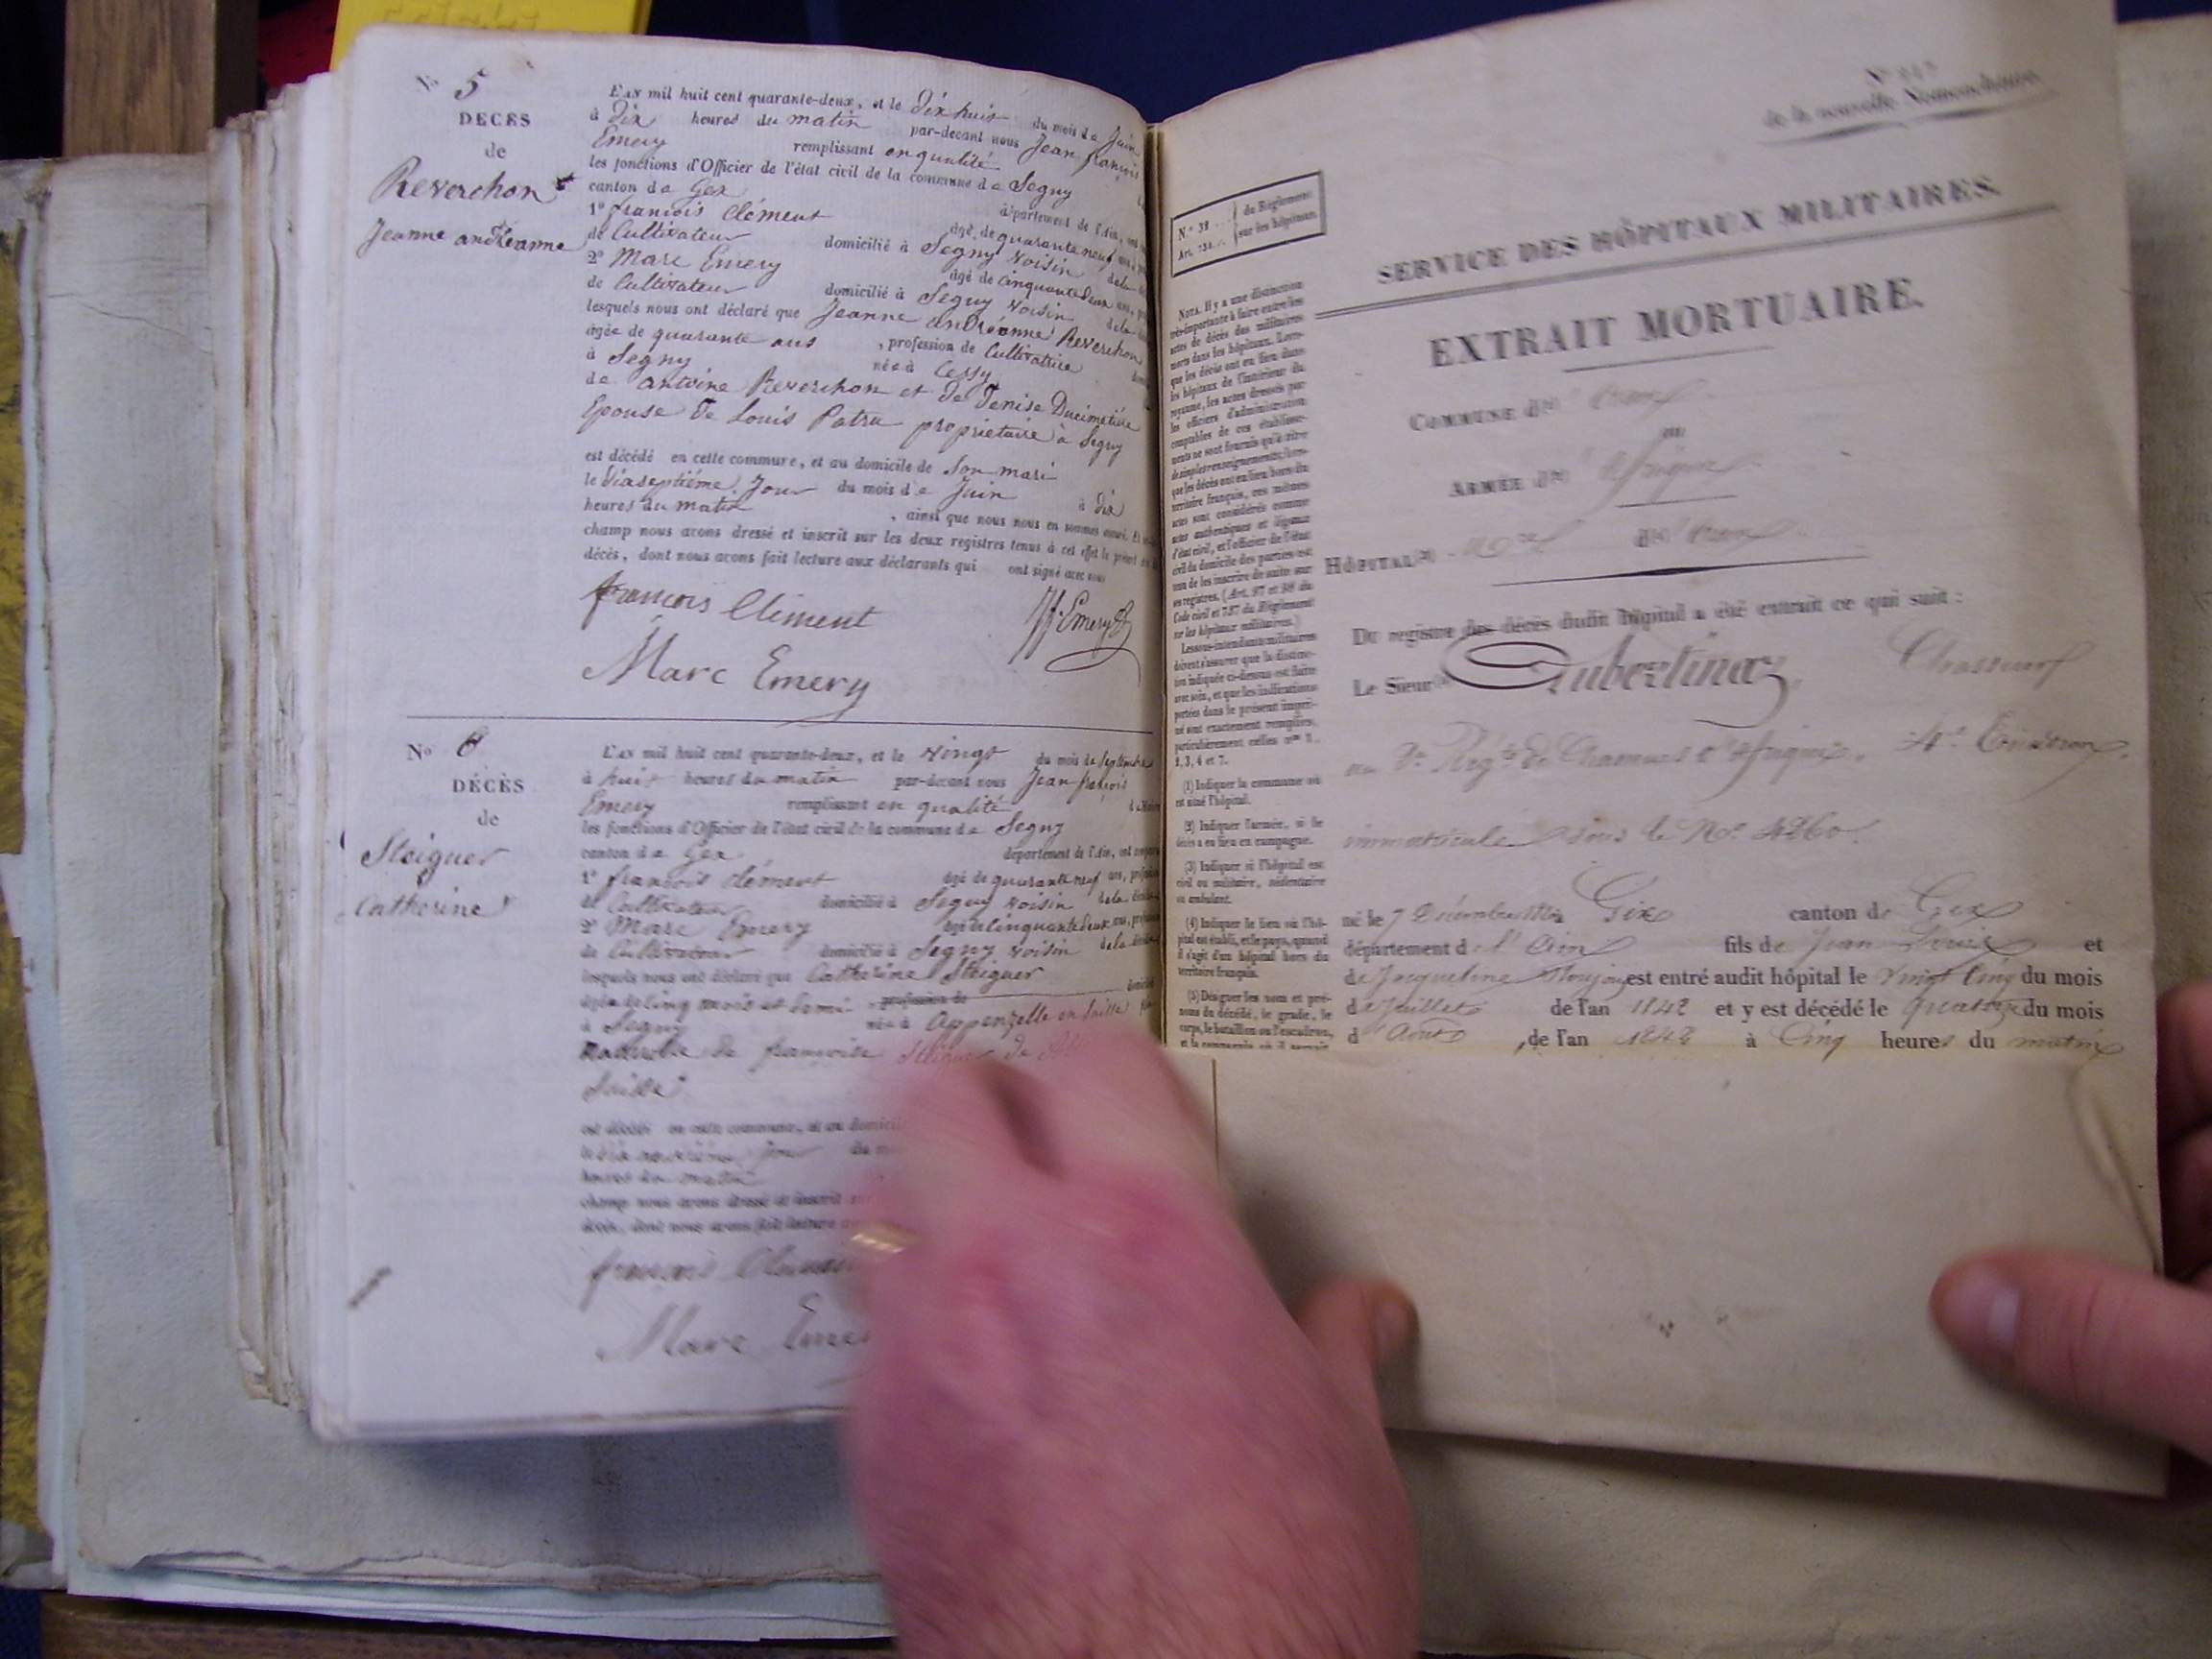 No 5
DECES
de
Reverchon
Jeanne andréanne
L'AN mil huit cent quarante-deux, et le dix huit du mois de Juin
à dix heures du matin par-devant nous Jean françois
Emery remplissant en qualité
les fonctions d'Officier de l'état civil de la commune de Segny
canton de Gex département de l'Ain, ont
1° françois Clément âgé de quarante neuf ans,
de Cultivateur domicilié à Segny voisin de la
2° Marc Emery âgé de cinquante deux ans,
de Cultivateur domicilié à Segny voisin de la
lesquels nous ont déclaré que Jeanne andréanne Reverchon
âgée de quarante ans , profession de Cultivatrice
à Segny née à Cessy
de antoine Reverchon et de Denise Ducimetière
Epouse de Louis Patru propriétaire à Segny
est décédé en cette commune, et au domicile de Son mari
le dixseptième Jour du mois de Juin à dix
heures du matin , ainsi que nous nous en sommes assuré. Et
champ nous avons dressé et inscrit sur les deux registres tenus à cet effet le présent
décès, dont nous avons fait lecture aux déclarants qui ont signé avec nous
françois Clément
Marc Emery
No 6
DÉCÈS
de
Steiguer
Catherine
L'AN mil huit cent quarante-deux, et le vingt du mois de septembre
à huit heures du matin par-devant nous Jean françois
Emery remplissant en qualité
les fonctions d'Officier de l'état civil de la commune de Segny
canton de Gex département de l'Ain, ont
1° françois Clément âgé de quarante neuf ans,
de Cultivateur domicilié à Segny voisin de la
2° Marc Emery âgé de cinquante deux ans,
de Cultivateur domicilié à Segny voisin de la
lesquels nous ont déclaré que Catherine Steiguer
âgée de cinq mois et demi , profession de
à Segny née à Appenzelle en Suisse
naturelle de françoise
Suisse
est décédé en cette commune, et au domicile
heures du matin
champ nous avons dressé et inscrit
décès, dont nous avons fait lecture
françois
Marc
de la nouvelle Nomenclature.
N.° 39
Art. 734
du Règlement
sur les hôpitaux.
SERVICE DES HÔPITAUX MILITAIRES.
EXTRAIT MORTUAIRE.
COMMUNE d Oran
ou
ARMÉE d' Afrique
HÔPITAL d' Oran
Du registre des décès dudit hôpital a été extrait ce qui suit :
Le Sieur Chasseur
au 2e Régt de Chasseurs d'Afrique, 4e Escadron,
immatriculé sous le No 4260.
né le 7 Décembre à Gex canton de Gex
département de l'Ain fils de Jean Louis et
de Jacqueline est entré audit hôpital le vingt Cinq du mois
de Juillet de l'an 1842 et y est décédé le quatorze du mois
d'Août , de l'an 1842 à Cinq heures du matin
NOTA. Il y a une distinction
très-importante à faire entre les
actes de décès des militaires
morts dans les hôpitaux. Lors-
que les décès ont eu lieu dans
les hôpitaux de l'intérieur du
royaume, les actes dressés par
les officiers d'administration
comptables de ces établisse-
ments ne sont fournis qu'à titre
de simples renseignements; lors-
que les décès ont eu lieu hors du
territoire français, ces mêmes
actes sont considérés comme
actes authentiques et légaux
d'état civil, et l'officier de l'état
civil du domicile des parties est
tenu de les inscrire de suite sur
ses registres. (Art. 97 et 98 du
Code civil et 737 du Règlement
sur les hôpitaux militaires.)
Les sous-intendants militaires
doivent s'assurer que la distinc-
tion indiquée ci-dessus est faite
avec soin, et que les indications
portées dans le présent impri-
mé sont exactement remplies,
particulièrement celles nos 1,
2, 3, 4 et 7.
(1) Indiquer la commune où
est situé l'hôpital.
(2) Indiquer l'armée, si le
décès a eu lieu en campagne.
(3) Indiquer si l'hôpital est
civil ou militaire, sédentaire
ou ambulant.
(4) Indiquer le lieu où l'hô-
pital est établi, et le pays, quand
il s'agit d'un hôpital hors du
territoire français.
(5) Désigner les nom et pré-
noms du décédé, le grade, le
corps, le bataillon ou l'escadron,
et la compagnie où il servait